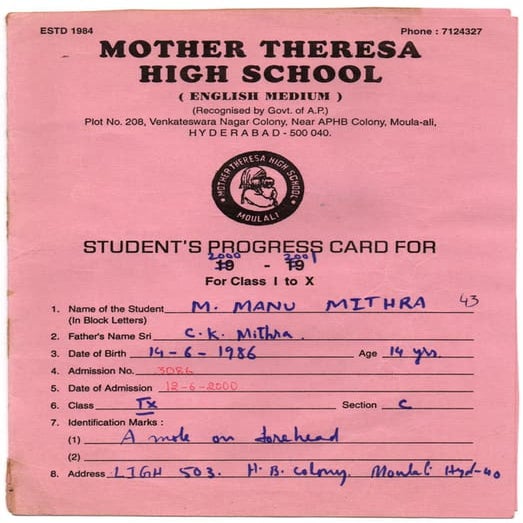 ESTD 1984 Phone : 7124327
MOTHER THERESA
HIGH SCHOOL
( ENGLISH MEDIUM )
(Recognised by Govt. of A.P.)
Plot No. 208, Venkateswara Nagar Colony, Near APHB Colony, Moula-ali,
HYDERABAD - 500 040.
MOTHER THERESA HIGH SCHOOL
MOULALI
STUDENT'S PROGRESS CARD FOR
2000 2001
19 - 19
For Class I to X
1. Name of the Student M. MANU MITHRA 43
(In Block Letters)
2. Father's Name Sri C.K. Mithra.
3. Date of Birth 14-6-1986 Age 14 yrs.
4. Admission No. 3086
5. Date of Admission 12-6-2000
6. Class IX Section C
7. Identification Marks :
(1) A mole on forehead
(2)
8. Address LIGH 503. H.B. colony. Moulali Hyd-40